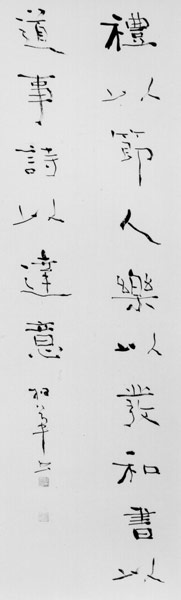 禮以節人樂以發和書以
道事詩以達意